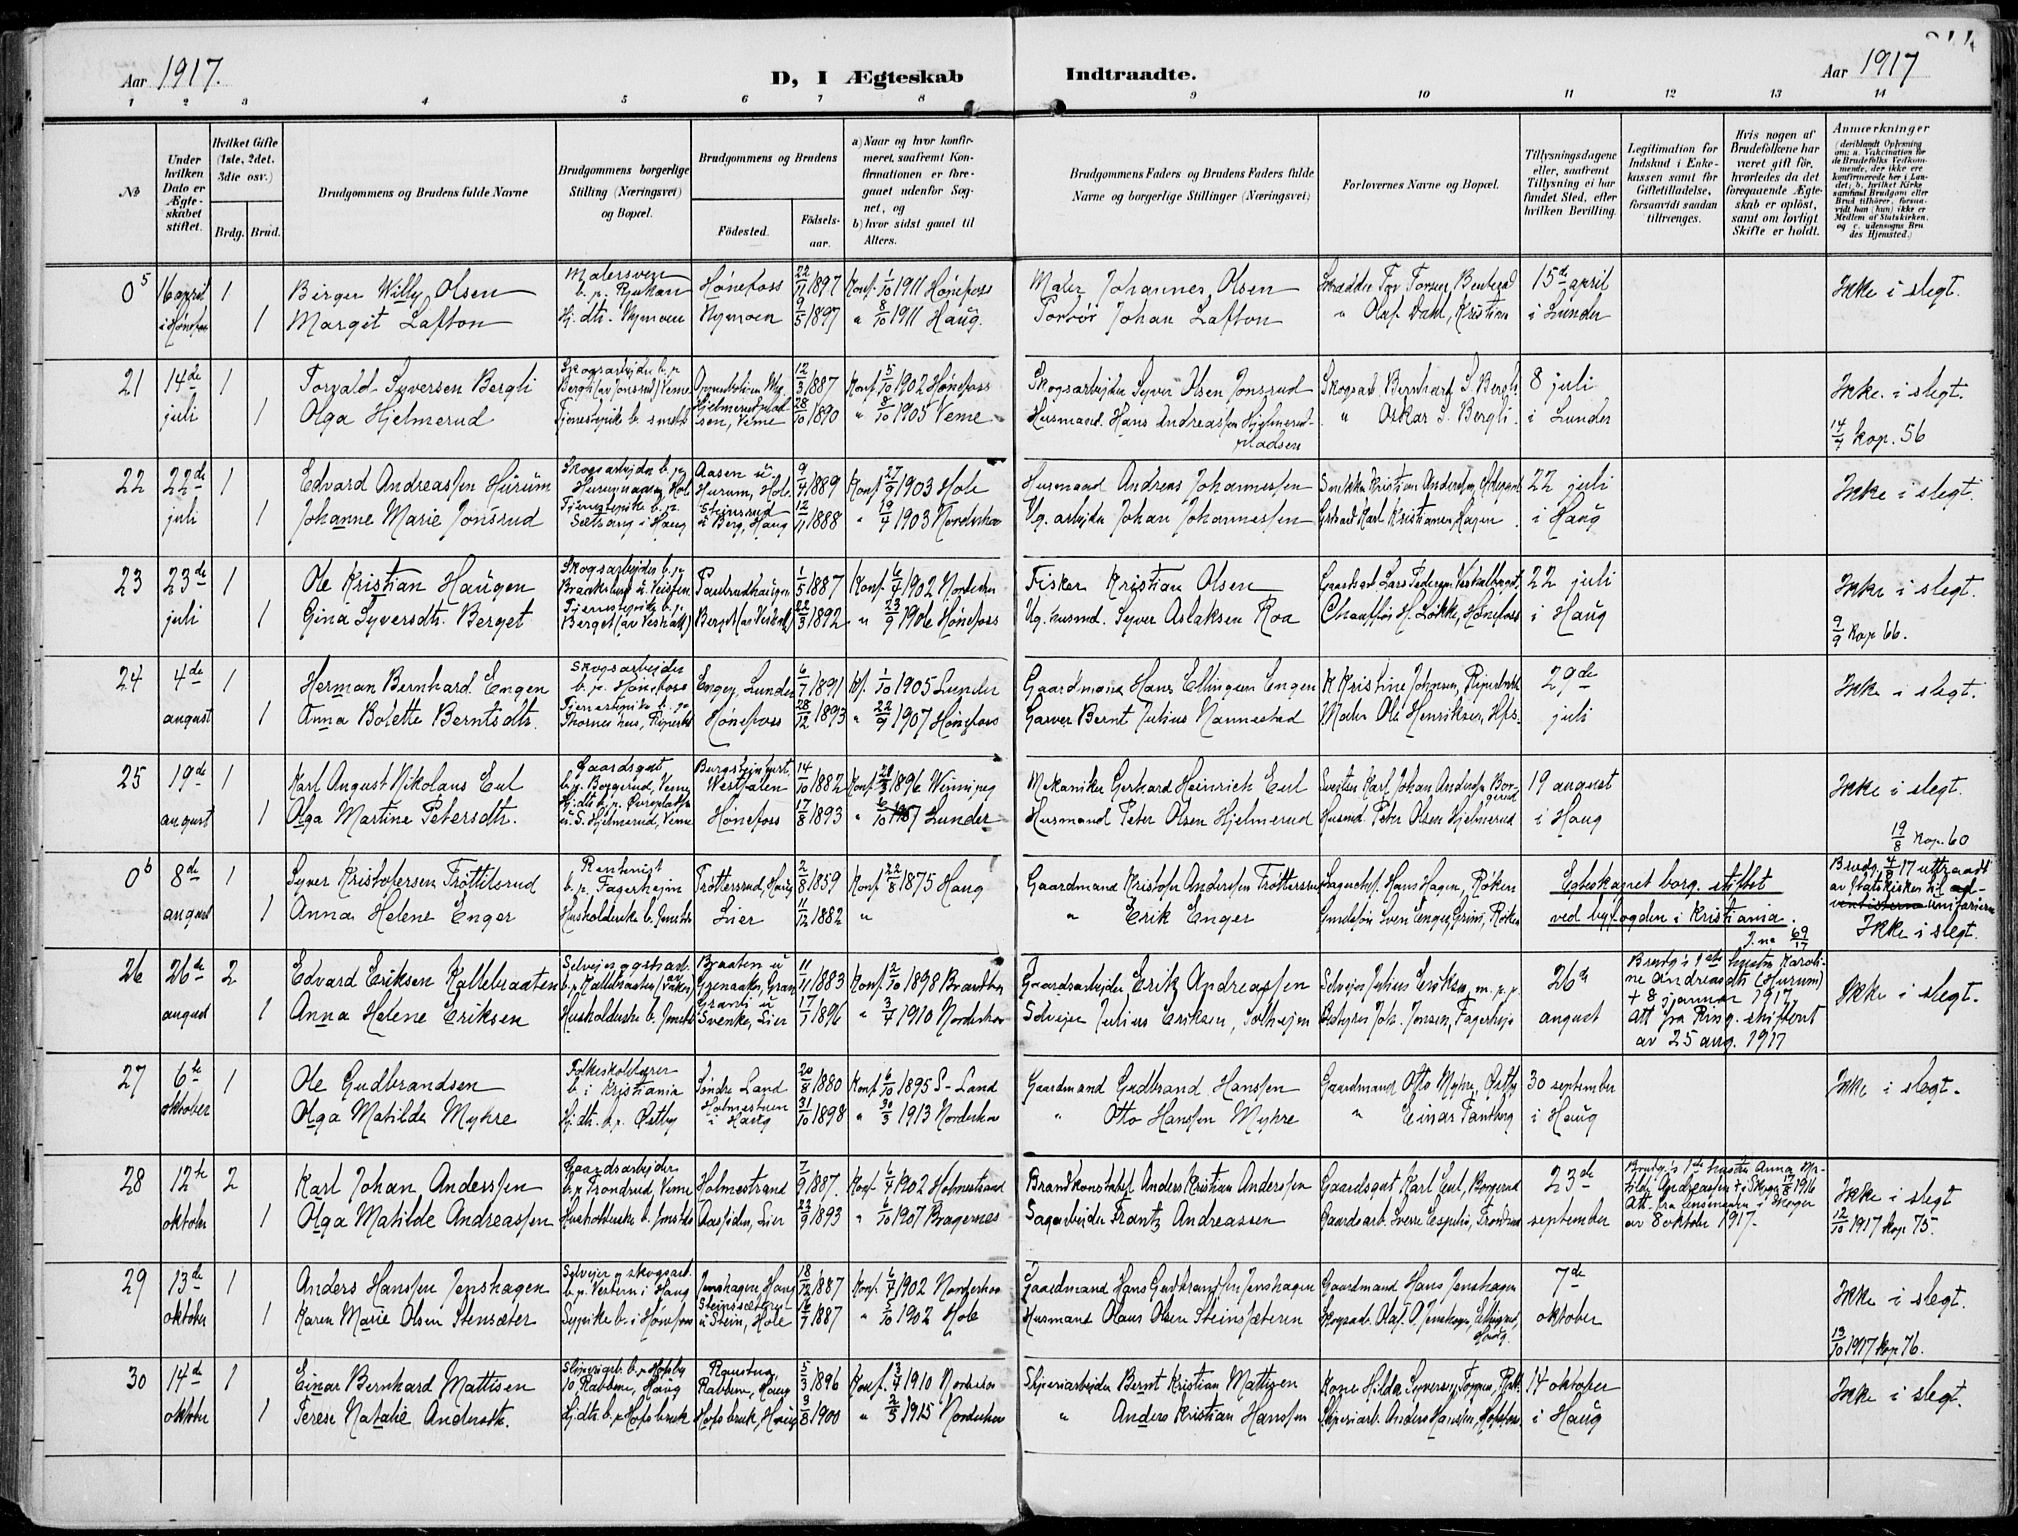 Aar 1917.
D, I Ægteskab
Indtraadte.
Aar 1917
1 2 3 4 5 6 7 8 9 10 11 12 13 14
No
Under hvilken Dato er Ægteskabet stiftet.
Hvilket Gifte (1ste, 2det, 3die osv.)
Brdg. Brud.
Brudgommens og Brudens fulde Navne
Brudgommens borgerlige Stilling (Næringsvei) og Bopæl.
Brudgommens og Brudens
Födested.
Födselsaar.
a) Naar og hvor konfirmeret, saafremt Konfirmationen er foregaaet udenfor Sognet, og
b) hvor sidst gaaet til Alters.
Brudgommens Faders og Brudens Faders fulde Navne og borgerlige Stillinger (Næringsvei)
Forlovernes Navne og Bopæl.
Tillysningsdagene eller, saafremt Tillysning ei har fundet Sted, efter hvilken Bevilling.
Legitimation for Indskud i Enkekassen samt for Giftetilladelse, forsaavidt saadan tiltrænges.
Hvis nogen af Brudefolkene har været gift för, hvorledes da det foregaaende Ægteskab er oplöst, samt om lovligt Skifte er holdt.
Anmærkninger
(deriblandt Oplysning om: a. Vakcination for de Brudefolks Vedkommende, der ikke ere konfirmerede her i Landet; b. hvilket Kirkesamfund Brudgom eller Brud tilhörer, forsaavidt han (hun) ikke er Medlem af Statskirken, og c. udensogns Brudes Hjemsted.)
0⁵ 16 april 1 Birger Willy Olsen Malersven b. p. Rjukan Hønefoss 22/11 1897 Konf. 1/10 1911 Hønefoss Maler Johannes Olsen 15d april Ikke i slegt.
i Hønefoss 1 Margit Lafton Hj. dtr. Nymoen Nymoen 9/5 1897 " 8/10 1911 Haug. Johan Lafton " Olaf Dahl, Kristiania i Lunder
21 14de 1 Torvald Syversen Bergli Skogsarbeider b. p. Bergli (av Jonsrud) Veme 12/3 1887 Konf 5/10 1902 Hønefoss Skogsarbeider Syver Olsen Jonsrud Skogsarb. Bernhard S. Bergli 8 juli Ikke i slegt.
juli 1 Olga Hjelmerud Hjelmerudpladsen, Veme 28/10 1890 " 8/10 1905 Veme Husmand Hans Andreassen Hjelmerudpladsen " Oskar S. Bergli i Lunder
14/7 kop. 56
22 22de 1 Edvard Andreassen Hurum Skogsarbeider b. p. Aasen u Hurum, Hole 9/4 1889 Konf 27/9 1903 Hole Husmand Andreas Johannessen 22 juli Ikke i slegt.
juli 1 Johanne Marie Jonsrud Tjenestepike b. p. i Haug Steinsrud u Berg, Haug 12/11 1888 " 19/4 1903 Norderhov Vg. arbeider Johan Johannessen Karl Kristiansen, Hagen i Haug
23 23de 1 Ole Kristian Haugen Skogsarbeider b. p. Paulsrudhaugen 1/5 1887 Konf 6/4 1902 Norderhov Fisker Kristian Olsen 22 juli Ikke i slegt.
juli 1 Gina Syversdtr. Berget Tjenestepike b. p. Berget 22/3 1892 " 23/9 1906 Hønefoss Vg. husmd. Syver Aslaksen Roa Chauffør H. Løkke, Hønefoss i Haug
9/9 kop 66.
24 4de 1 Herman Bernhard Engen Skogsarbeider b. p. Hønefoss Engen, Lunder 6/7 1891 Kf. 1/10 1905 Lunder Gaardmand Hans Ellingsen Engen K Kristine Johnsen, 29de Ikke i slegt.
august 1 Anna Bolette Berntsdtr. Tjenestepike b. p. Hønefoss 28/12 1893 " 22/9 1907 Hønefoss Garver Bernt Julius Nannestad Maler Ole Henriksen, Hfs. juli
25 19de 1 Karl August Nikolaus Eul Gaardsgut b. p. Borgerud, Veme Westfalen 14/10 1882 Konf 1896 Winnipeg Mekaniker Gerhard Heinrich Eul Karl Johan Anderssen Borgerud 19 august Ikke i slegt.
august 1 Olga Martine Petersdtr. Hj. dtr. b. p. u. S. Hjelmerud, Veme Hønefoss 17/8 1893 " 6/10 1907 Lunder Husmand Peter Olsen Hjelmerud Husmd. Peter Olsen Hjelmerud i Haug
19/8 kop. 60
0⁶ 8de 1 Syver Kristofersen Trøttilsrud Rentenist b. p. Fagerheim Trøttersrud, Haug 2/8 1859 Konf 22/8 1875 Haug Gaardmand Kristofer Anderssen Hans Hagen, Røken Egteskapet borg. stiftet Brudg. 4/8 17 uttraadt
august 1 Anna Helene Enger Husholderske b. Lier 11/12 1882 " " Erik Enger Sven Enger, Grini, Røken ved byfogden i Kristiania. av statskirken til unitarierne
J. no 69/17 Ikke i slegt.
26 26de 2 Edvard Eriksen Kallebraaten Selveier og skogsarb. Braaten u 11/11 1883 Konf. 2/10 1898 Brandbu Gaardsarbeider Erik Andreassen Selveier Julius Eriksen, m. p. p. 26de Brudg's 1ste hustru Karoline Andreasdtr. (Hurum) Ikke i slegt.
august 1 Anna Helene Eriksen Husholderske b. Svenke, Lier 17/1 1896 " 3/4 1910 Norderhov Selveier Julius Eriksen, Solheim Joh. Jonsen, Fagerheim august + 8 januar 1917.
Att fra Ring. skifteret av 25 aug. 1917
27 6te 1 Ole Gudbrandsen Folkeskolelærer b. i Kristiania Søndre Land 20/8 1880 Konf 6/10 1895 S-Land Gaardmand Gudbrand Hanssen Gaardmand Otto Myhre, Østby 30 september Ikke i slegt.
oktober 1 Olga Matilde Myhre Hj. dtr. b. p. Østby i Haug 31/10 1898 " 30/3 1913 Norderhov " Otto Hanssen Myhre " Einar Tandberg i Haug
28 12te 2 Karl Johan Anderssen Gaardsarbeider b. p. Trondrud, Veme Holmestrand 7/9 1887. Konf. 6/4 1902 Holmestrand Brandkonstabel Anders Kristian Anderssen Gaardsgut Karl Eul, Borgerud 23de Brudg's 1ste hustru Anna Matilde Andreassen + i Skoger 17/8 1916 Ikke i slegt
oktober 1 Olga Matilde Andreassen Husholderske b. Aassiden, Lier 22/9 1893 " 6/10 1907 Bragernes Sagarbeider Frantz Andreassen Gaardsarb. Sverre Espelid, Trondrud september Att. fra lensmanden i Skoger av 8 oktober 1917. 12/10 1917 kop 75.
29 13de 1 Anders Hanssen Jenshagen Selveier og skogsarb. b. p. Vestern i Haug Jenshagen Haug 18/12 1887 Konf. 6/4 1902 Norderhov Gaardmand Hans Gudbrandssen Jenshagen Gaardmand Hans Jenshagen 7de Ikke i slegt.
oktober 1 Karen Marie Olsen Stensæter Sypike b. i Hønefoss Steinssæteren u Stein, Hole 6/7 1887 " 5/10 1902 Hole Husmand Olaus Olsen Steinssæteren Skogsarb. Olaf O. Jenshagen, Haug. oktober
13/10 1917 kop 76.
30 14de 1 Einar Bernhard Mattisen Sliperiarb. b. p. Rabben, Haug Rabben, Haug 5/3 1896 Konf. 3/4 1910 Norderhov Sliperiarbeider Bernt Kristian Mattisen Kone Hilda Syversen, Toppen, 14 oktober Ikke i slegt.
oktober 1 Terese Natalie Andersdtr. Hj. dtr. b. p. Hofs bruk Hofs bruk, Haug 9/8 1900 " 2/5 1915 Norderhov " Anders Kristian Hanssen Sliperiarb. Anders Hanssen, Hofsfoss i Haug